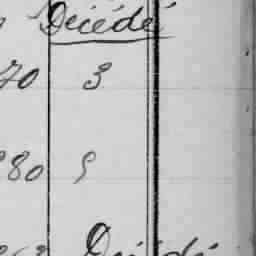 Décédé
70 3
80 5
Décédé